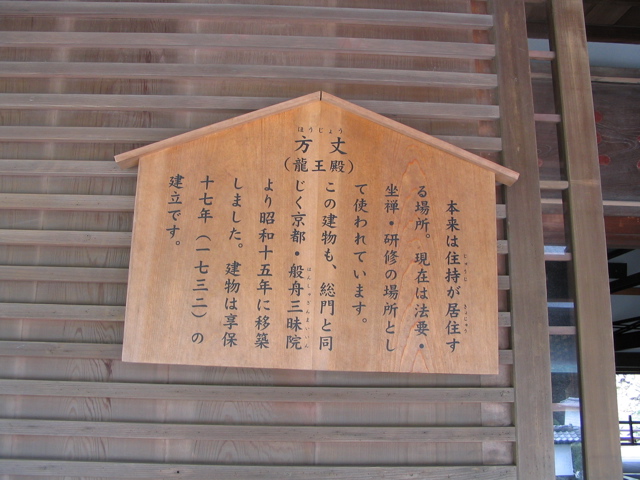 ほうじょう
方丈
（龍王殿）
本来は住持が居住す
る場所。現在は法要・
坐禅・研修の場所とし
て使われています。
この建物も、総門と同
じく京都・般舟三昧院
より昭和十五年に移築
しました。建物は享保
十七年（一七三二）の
建立です。